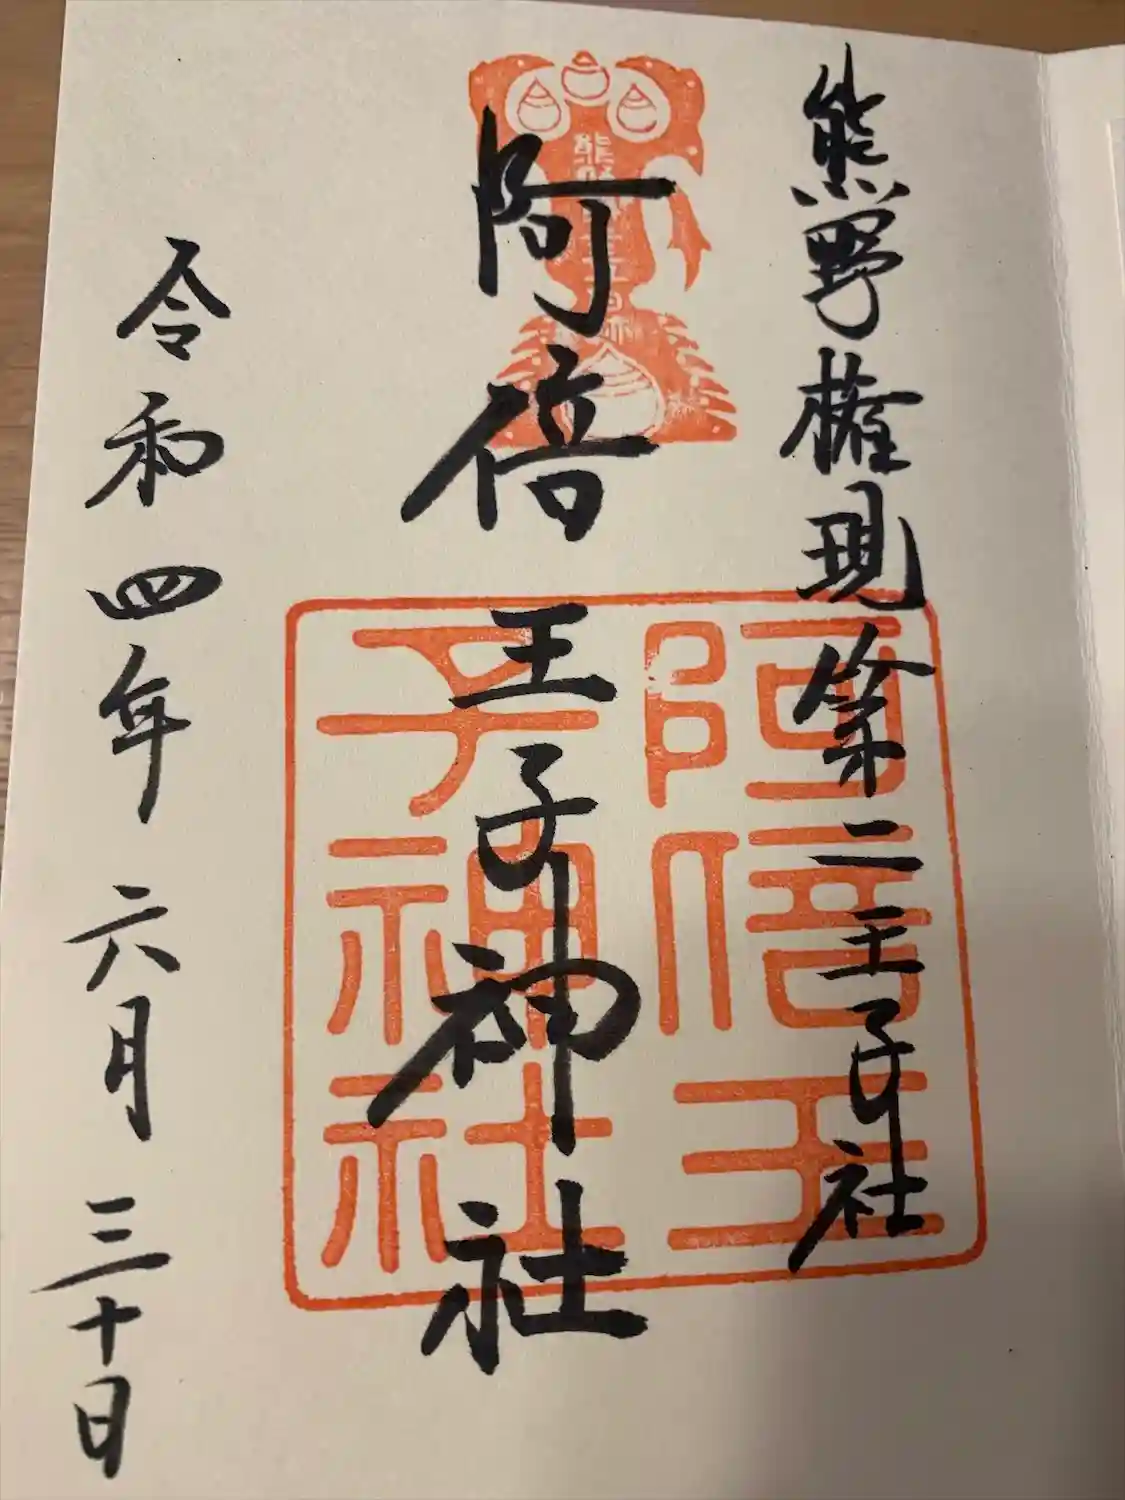 熊野権現第二王子社
阿倍王子神社
令和四年六月三十日
阿倍王
子神社